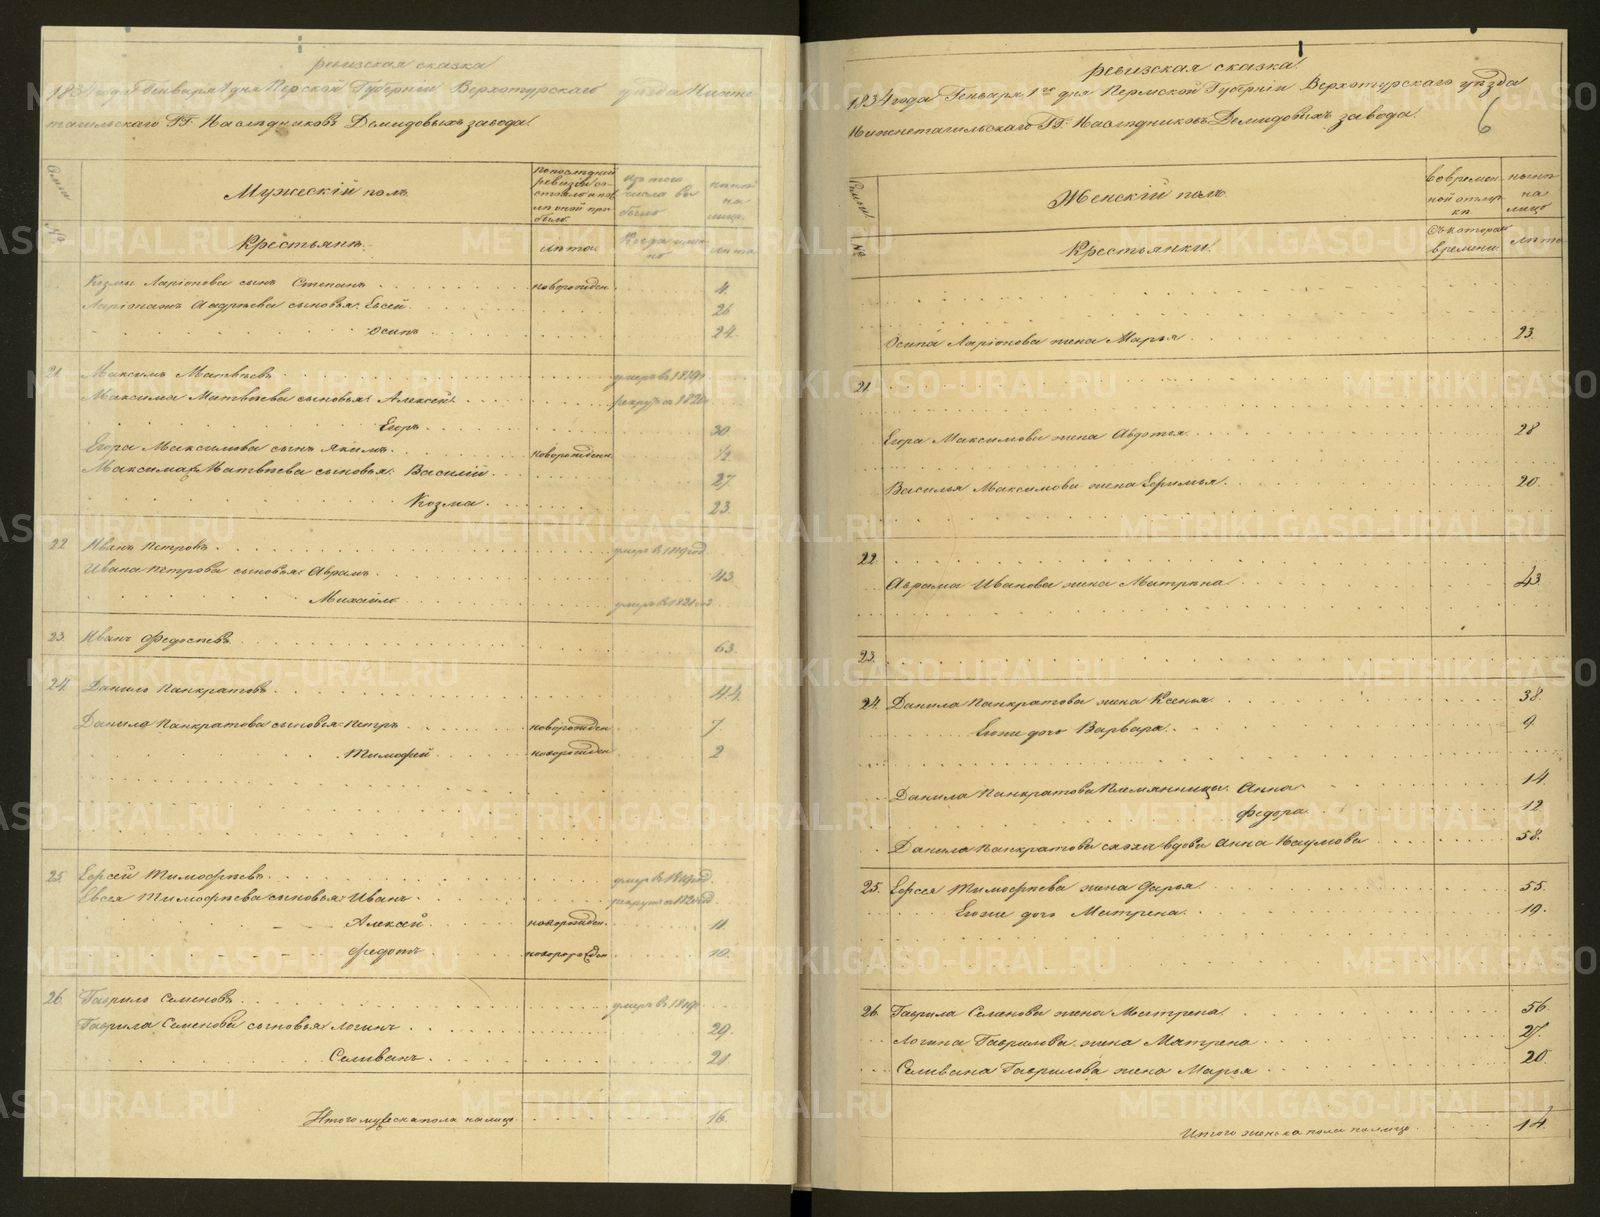 ревизская сказка
1834 года Генваря 1 дня Пермской Губерніи Верхотурскаго уѣзда Нижне
тагильскаго ГГ. Наслѣдниковъ Демидовыхъ завода.
Мужескій полъ.
По послѣдней ревизіи состояло и послѣ оной прибыло.
Изъ того числа выбыло
нынѣ на лицо.
№
Крестьяне.
лѣта.
Когда именно
лѣта
Козмы Ларіонова сынъ Степанъ новорожден. 4.
Ларіона Андреева сыновья: Евсей 26
Осипъ 24.
21. Максимъ Матвѣевъ умеръ въ 1819
Максима Матвѣева сыновья: Алексей рекрутъ 1820
Егоръ 30.
Егора Максимова сынъ Якимъ новорожденн. ½
Максима Матвѣева сыновья: Василій 27.
Козма 23.
22. Иванъ Петровъ умеръ въ 1819 год
Ивана Петрова сыновья: Аврамъ 43.
Михайло умеръ въ 1821 год
23. Иванъ Федосѣевъ 63.
24. Данило Панкратовъ 44.
Данила Панкратова сыновья: Петръ новорожден 7.
Тимофей новорожден 2
25. Евсей Тимофѣевъ умеръ въ 1819 год
Евсея Тимофѣева сыновья: Иванъ рекрутъ 1820 год
Алексей новорожден. 11.
Федотъ новорожден 10.
26. Гаврило Семеновъ умеръ въ 1819
Гаврила Семенова сыновья: Логинъ 29.
Селиванъ 21
Итого мужеска пола на лицо 16.
ревизская сказка.
1834 года Генваря 1го дня Пермской Губерніи Верхотурскаго уѣзда
Нижнетагильскаго ГГ. Наслѣдниковъ Демидовыхъ завода.
6
Женскій полъ.
Во временной отлучкѣ
нынѣ на лицо
№
Крестьянки.
Съ котораго времени.
лѣта
Осипа Ларіонова жена Марья 23.
21.
Егора Максимова жена Авдотья 28
Василья Максимова жена Ефимья 20.
22.
Аврама Иванова жена Матрена 43
23.
24. Данила Панкратова жена Ксенья 38.
Его же дочь Варвара 9.
Данила Панкратова племянницы: Анна 14
Федора 12
Данила Панкратова сноха вдова Анна Наумова 58.
25. Евсея Тимофѣева жена Дарья 55.
Его же дочь Матрена 19.
26. Гаврила Семенова жена Матрена 56.
Логина Гаврилова жена Матрена 27.
Селивана Гаврилова жена Марья 20
Итого женска пола на лицо 14.
METRIKI.GASO-URAL.RU